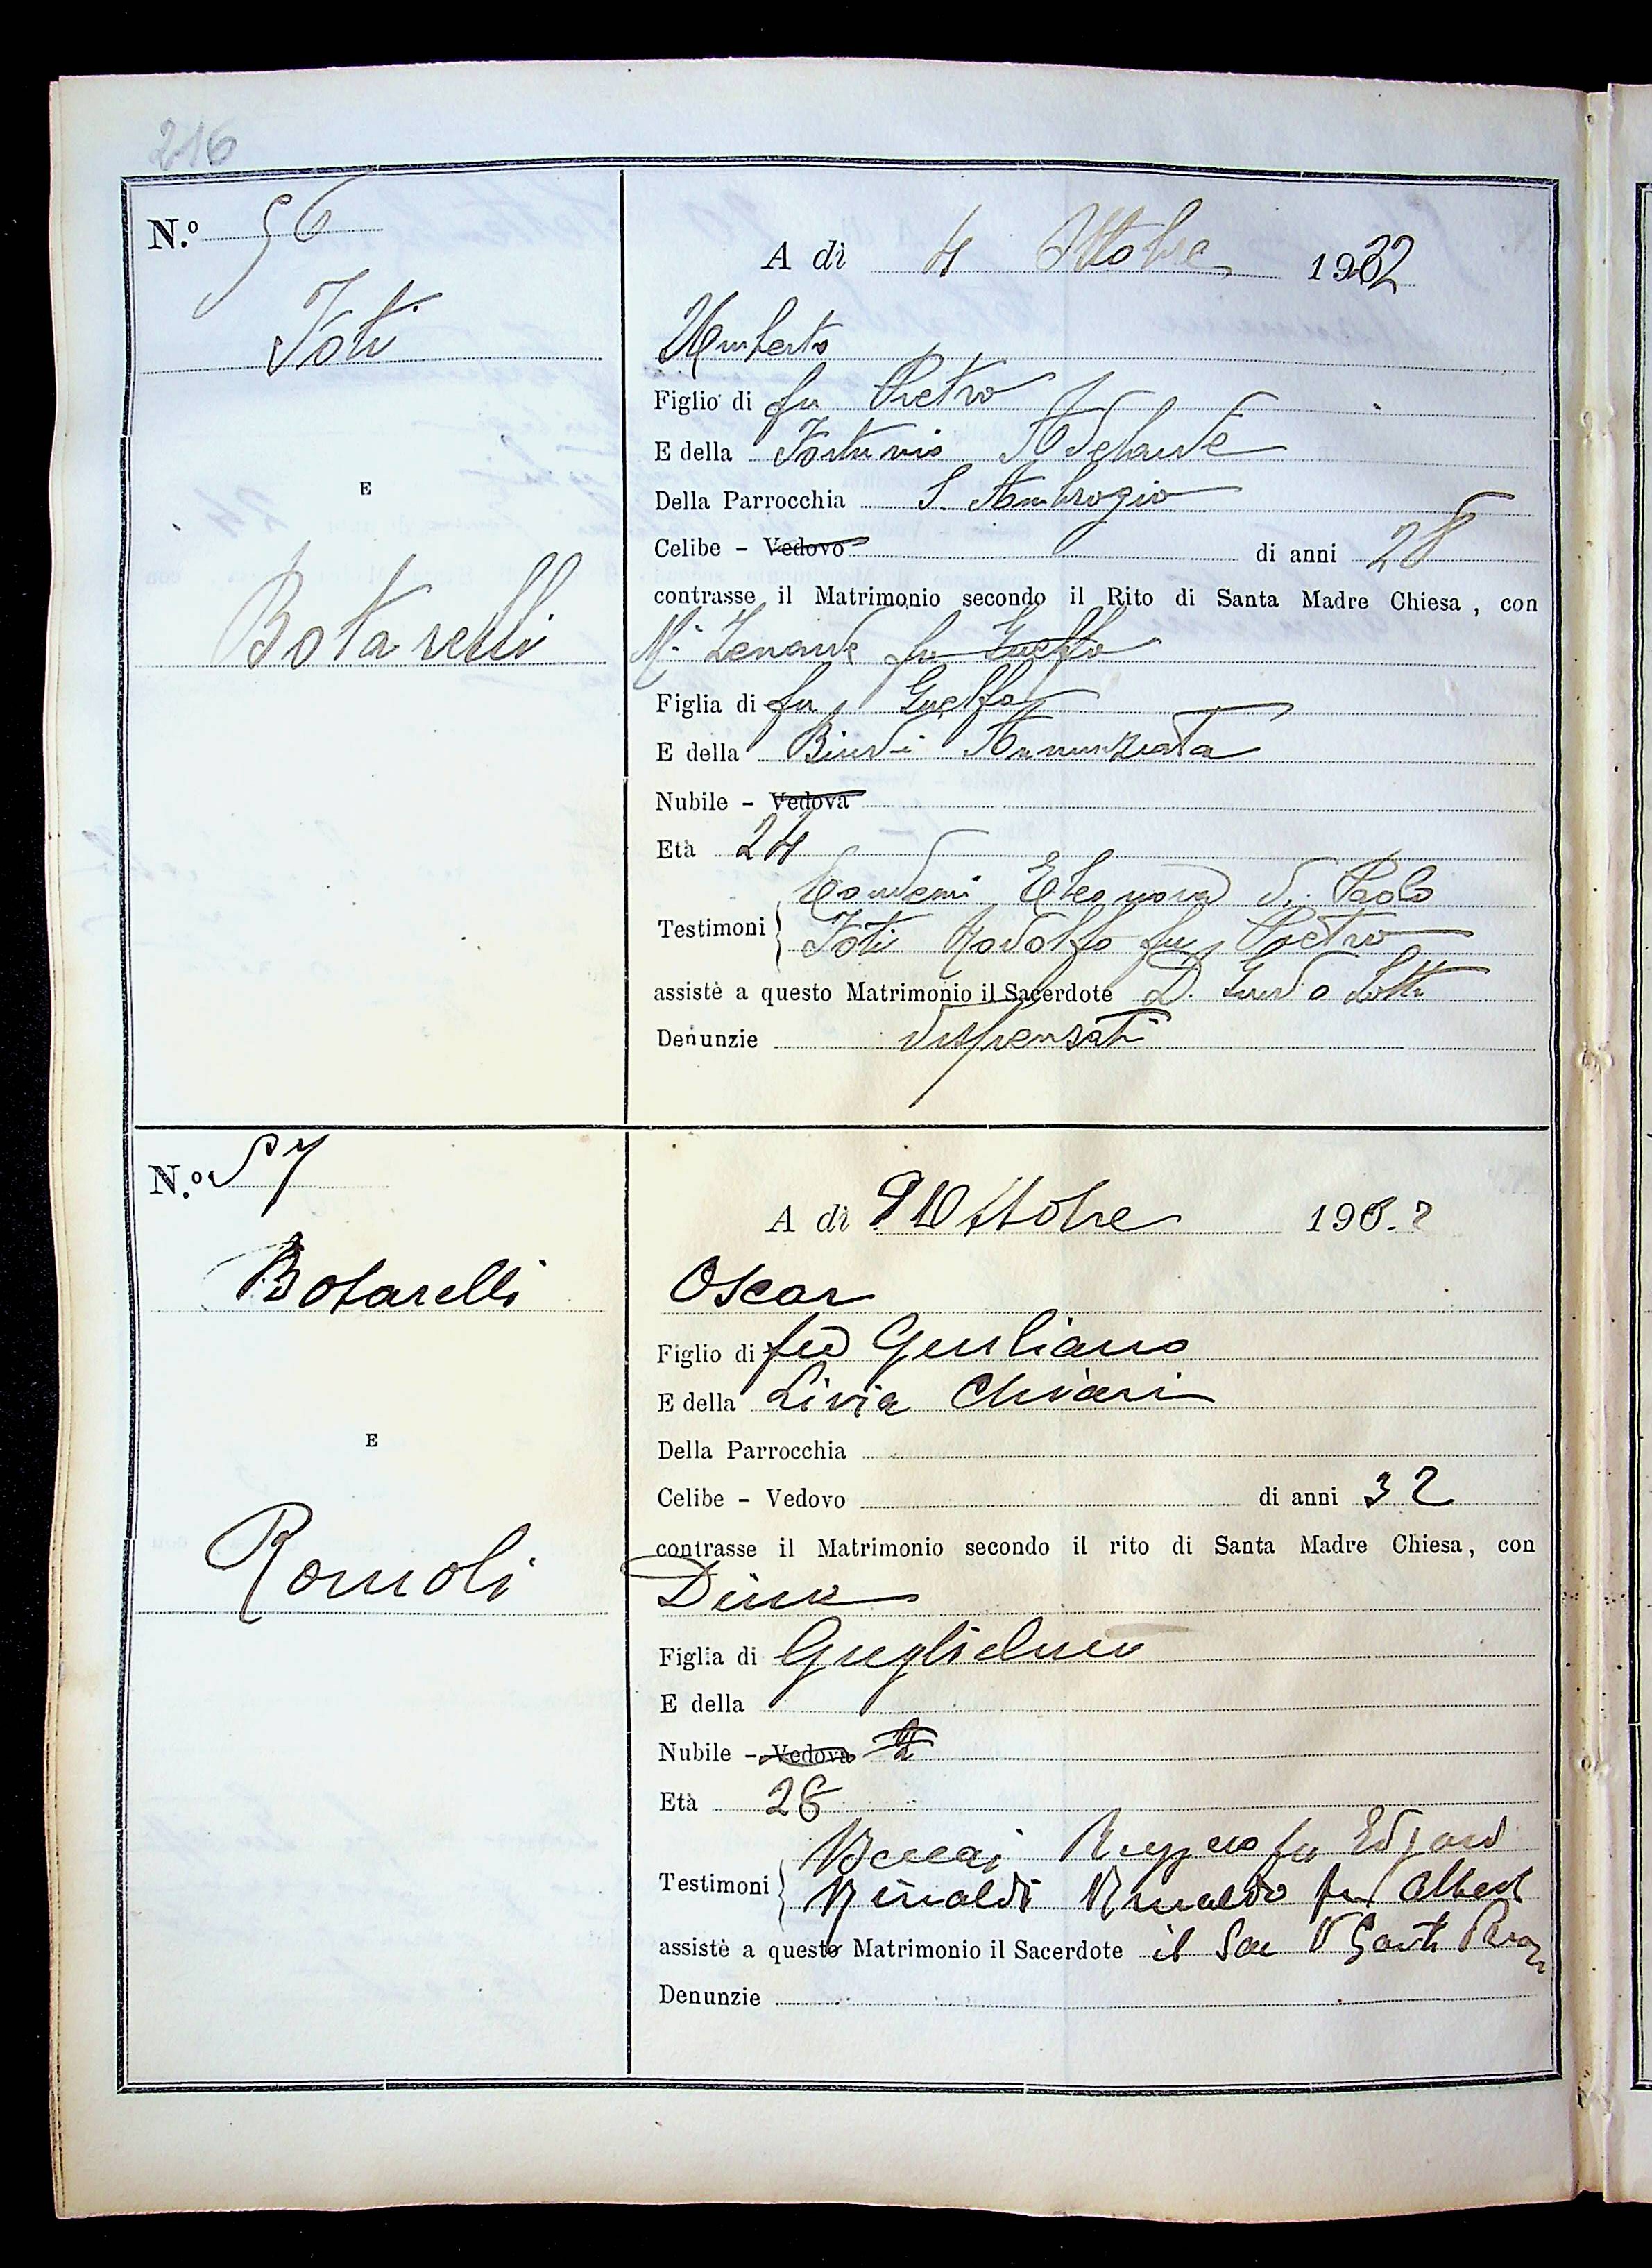 216
N.º 56
A dì 4 Ottobre 1932
Toti
Umberto
Figlio di fu Pietro
E della Adelaide
E
Della Parrocchia S. Ambrogio
Celibe - Vedovo di anni 28
contrasse il Matrimonio secondo il Rito di Santa Madre Chiesa, con
Botarelli
Mª Zenaide fu Guelfo
Figlia di fu Guelfo
E della Biondi Annunziata
Nubile - Vedova
Età 24
Eleonora di Paolo
Testimoni
Toti Rodolfo fu Pietro
assistè a questo Matrimonio il Sacerdote D. Guido Lotti
Denunzie dispensati
N.º 57
A dì 9 Ottobre 190.2
Botarelli
Oscar
Figlio di fu Giuliano
E della Livia Chiari
E
Della Parrocchia
Celibe - Vedovo di anni 32
contrasse il Matrimonio secondo il rito di Santa Madre Chiesa, con
Romoli
Dina
Figlia di Guglielmo
E della
Nubile - Vedova
Età 28
Ruggero fu Edgard
Testimoni
Rinaldi Rinaldo fu Albert
assistè a questo Matrimonio il Sacerdote il Sac
Denunzie